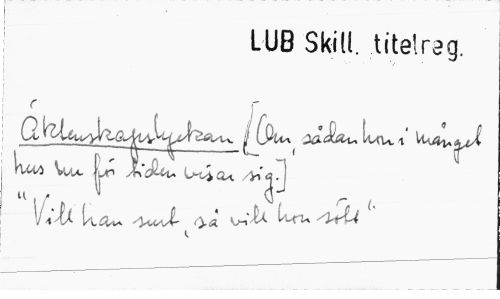 LUB Skill. titelreg.
Äktenskapslyckan [Om, sådan hon i månget
hus nu för tiden visar sig.]
"Vill han surt, så vill hon sött"